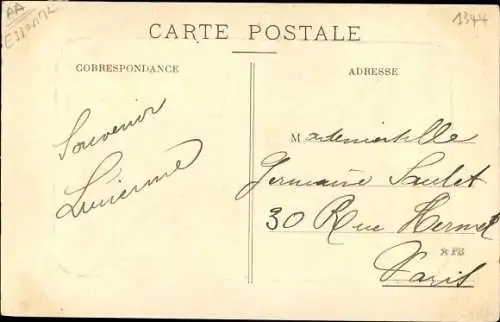 AA
Essonne
1344
CARTE POSTALE
CORRESPONDANCE
ADRESSE
Souvenir
Lucienne
Mademoiselle
Germaine Saulet
30 Rue Hermel
PB
Paris